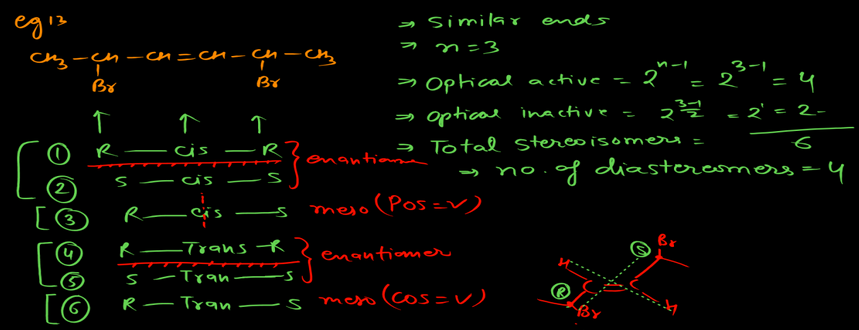 eg 13
CH3 – CH – CH = CH – CH – CH3
Br Br
↑ ↑ ↑
① R — cis — R } enantiome
② S — cis — S
③ R — cis — S meso (POS = ✓)
④ R — Trans – R } enantiomer
⑤ S – Tran — S
⑥ R – Tran — S meso (COS = ✓)
⇒ Similar ends
⇒ n = 3
⇒ Optical active = 2^{n-1} = 2^{3-1} = 4
⇒ Optical inactive = 2^{\frac{3-1}{2}} = 2^1 = 2
⇒ Total stereoisomers = 6
⇒ no. of diastereomers = 4
H C = C H
Ⓡ Br
Ⓢ Br